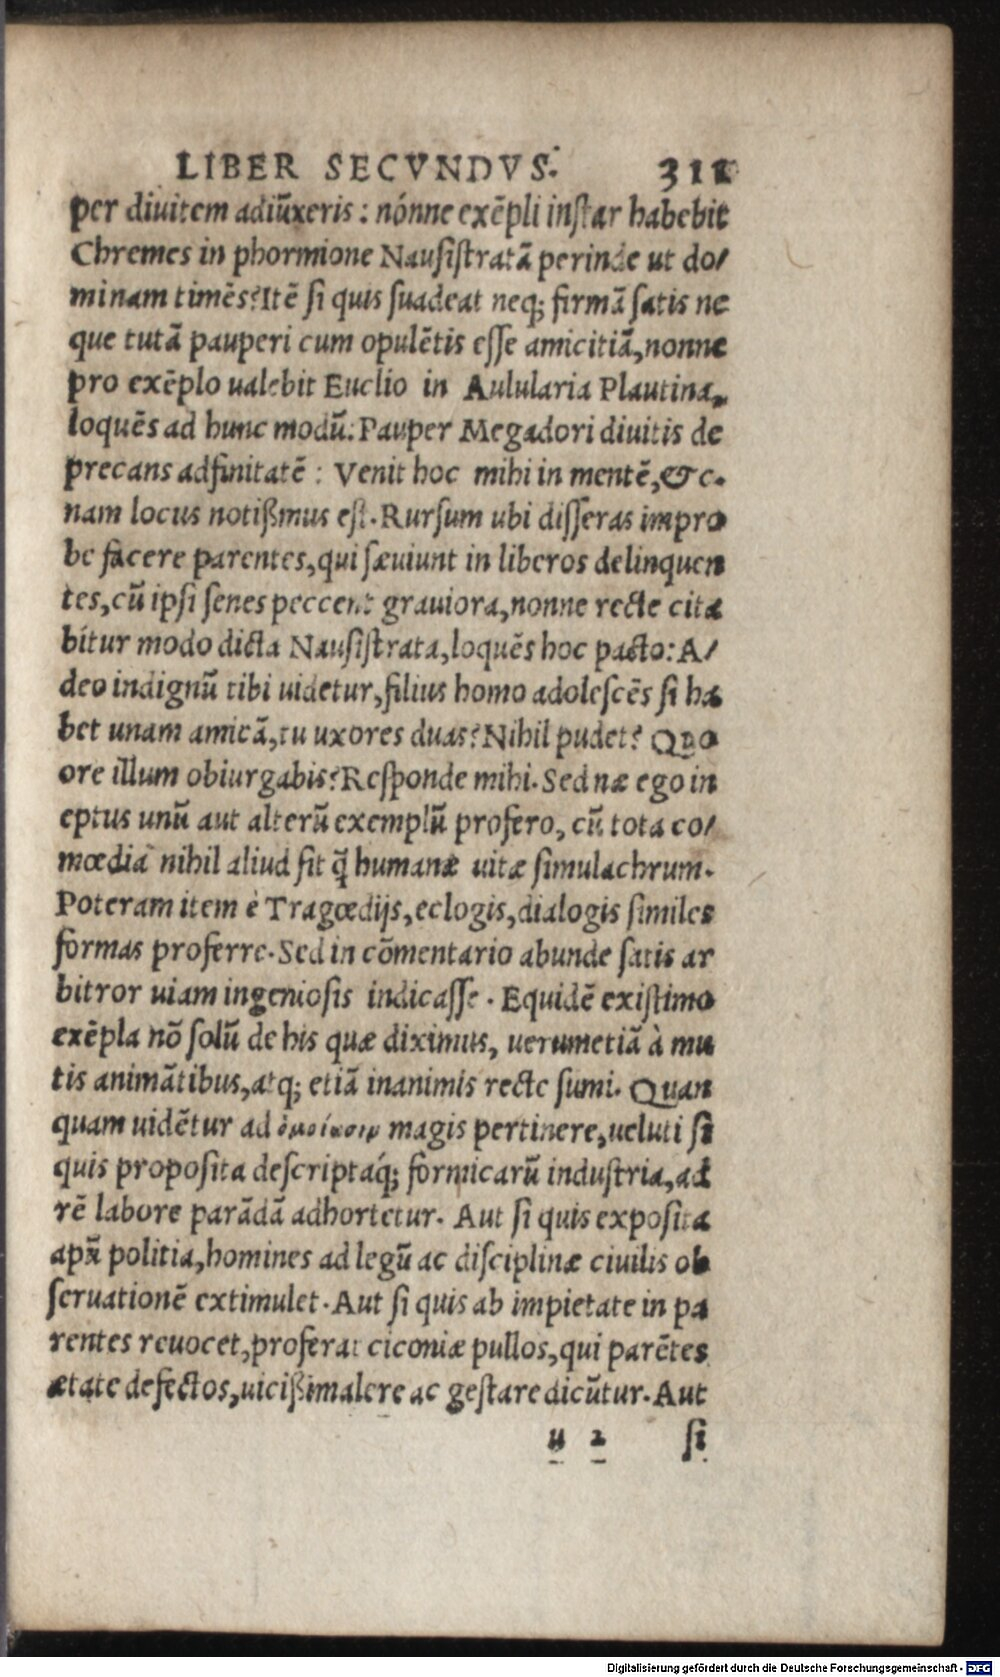 LIBER SECVNDVS. 311
per diuitem adiũxeris: nónne exẽpli instar habebit
Chremes in phormione Nausistratã perinde ut do/
minam timẽs? Itẽ si quis suadeat neq; firmã satis ne
que tutã pauperi cum opulẽtis esse amicitiã, nonne
pro exẽplo ualebit Euclio in Aulularia Plautina,
loquẽs ad hunc modũ: Pauper Megadori diuitis de
precans adfinitatẽ: Venit hoc mihi in mentẽ, &c.
nam locus notißmus est. Rursum ubi disseras impro
be facere parentes, qui sæuiunt in liberos delinquen
tes, cũ ipsi senes peccent grauiora, nonne recte cita
bitur modo dicta Nausistrata, loquẽs hoc pacto: A/
deo indignũ tibi uidetur, filius homo adolescẽs si ha
bet unam amicã, tu uxores duas? Nihil pudet? Quo
ore illum obiurgabis? Responde mihi. Sed næ ego in
eptus unũ aut alterũ exemplũ profero, cũ tota co/
mœdia nihil aliud sit q̃ humanæ uitæ simulachrum.
Poteram item è Tragœdijs, eclogis, dialogis similes
formas proferre. Sed in cõmentario abunde satis ar
bitror uiam ingeniosis indicasse. Equidẽ existimo
exẽpla nõ solũ de his quæ diximus, uerumetiã à mu
tis animãtibus, atq; etiã inanimis recte sumi. Quan
quam uidẽtur ad ὁμοίωσιν magis pertinere, ueluti si
quis proposita descriptáq; formicarũ industria, ad
rẽ labore parãdã adhortetur. Aut si quis exposita
apũ politia, homines ad legũ ac disciplinæ ciuilis ob
seruationẽ extimulet. Aut si quis ab impietate in pa
rentes reuocet, proferat ciconiæ pullos, qui parẽtes
ætate defectos, uicißim alere ac gestare dicũtur. Aut
u 2 si
Digitalisierung gefördert durch die Deutsche Forschungsgemeinschaft - DFG